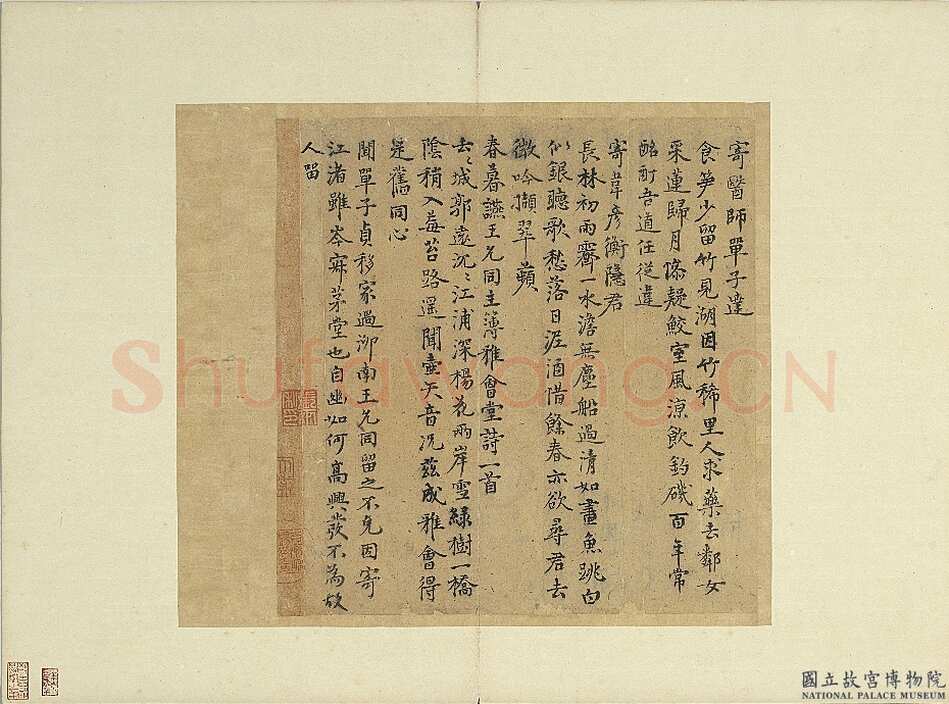 寄醫師單子達
食笋少留竹見湖因竹稀里人求藥去鄰女
采蓮歸月滌疑鮫室風涼飲釣磯百年常
酩酊吾道任從違
寄韋彥衡隱君
長林初雨霽一水澹無塵船過清如畫魚跳白
似銀聽歌愁落日泥酒惜餘春亦欲尋君去
微吟擷翠蘋
春暮讌王允同主簿雅會堂詩一首
去去城郭遠沉沉江浦深楊花兩岸雪綠樹一橋
陰稍入莓苔路遥聞壷矢音况兹成雅會得
是舊同心
聞單子貞移家過泖南王允同留之不克因寄
江渚雖岑寂茅堂也自幽如何高興發不為故
人留
ShufaWang.CN
國立故宮博物院
NATIONAL PALACE MUSEUM